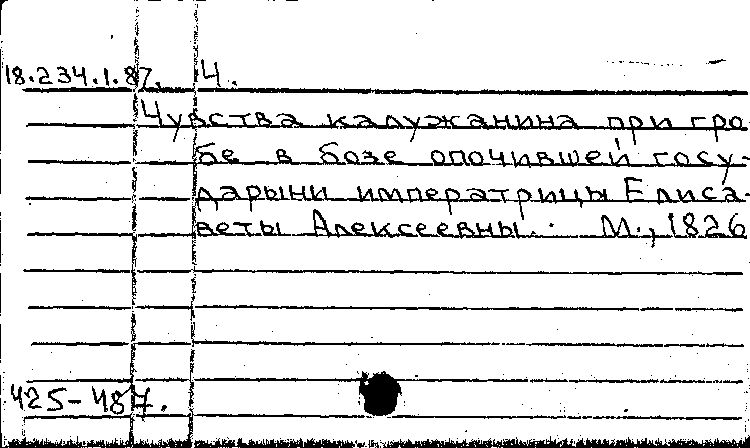 18.234.1.87. Ч.
Чувства калужанина при гро-
бе в бозе опочившей госу-
дарыни императрицы Елиса-
веты Алексеевны. М., 1826
425-487.